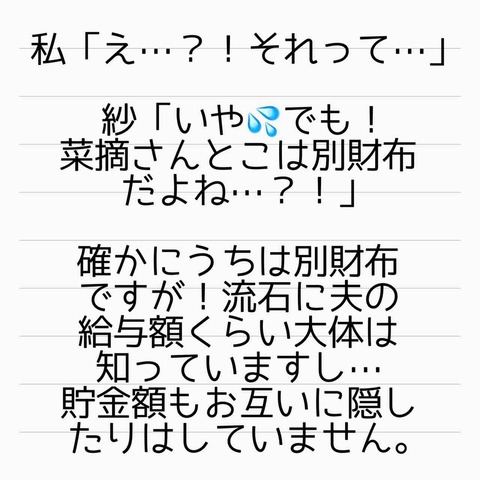 私「え…？！それって…」
紗「いや💦でも！
菜摘さんとこは別財布
だよね…？！」
確かにうちは別財布
ですが！流石に夫の
給与額くらい大体は
知っていますし…
貯金額もお互いに隠し
たりはしていません。